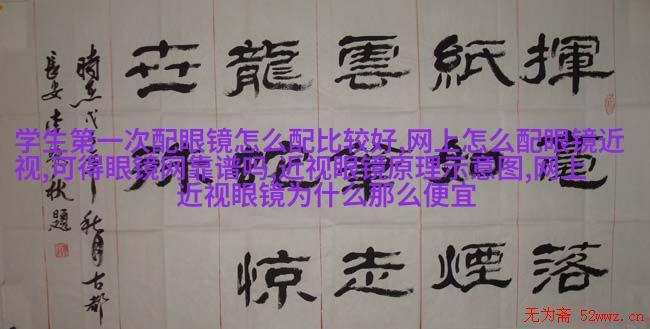 学生第一次配眼镜怎么配比较好,网上怎么配眼镜近
视,可得眼镜网靠谱吗,近视眼镜原理示意图,网上
近视眼镜为什么那么便宜
揮毫落
紙如煙
雲筆走
龍蛇惊
世殊
秋月古都
長安
題
无为斋 52wwz.cn